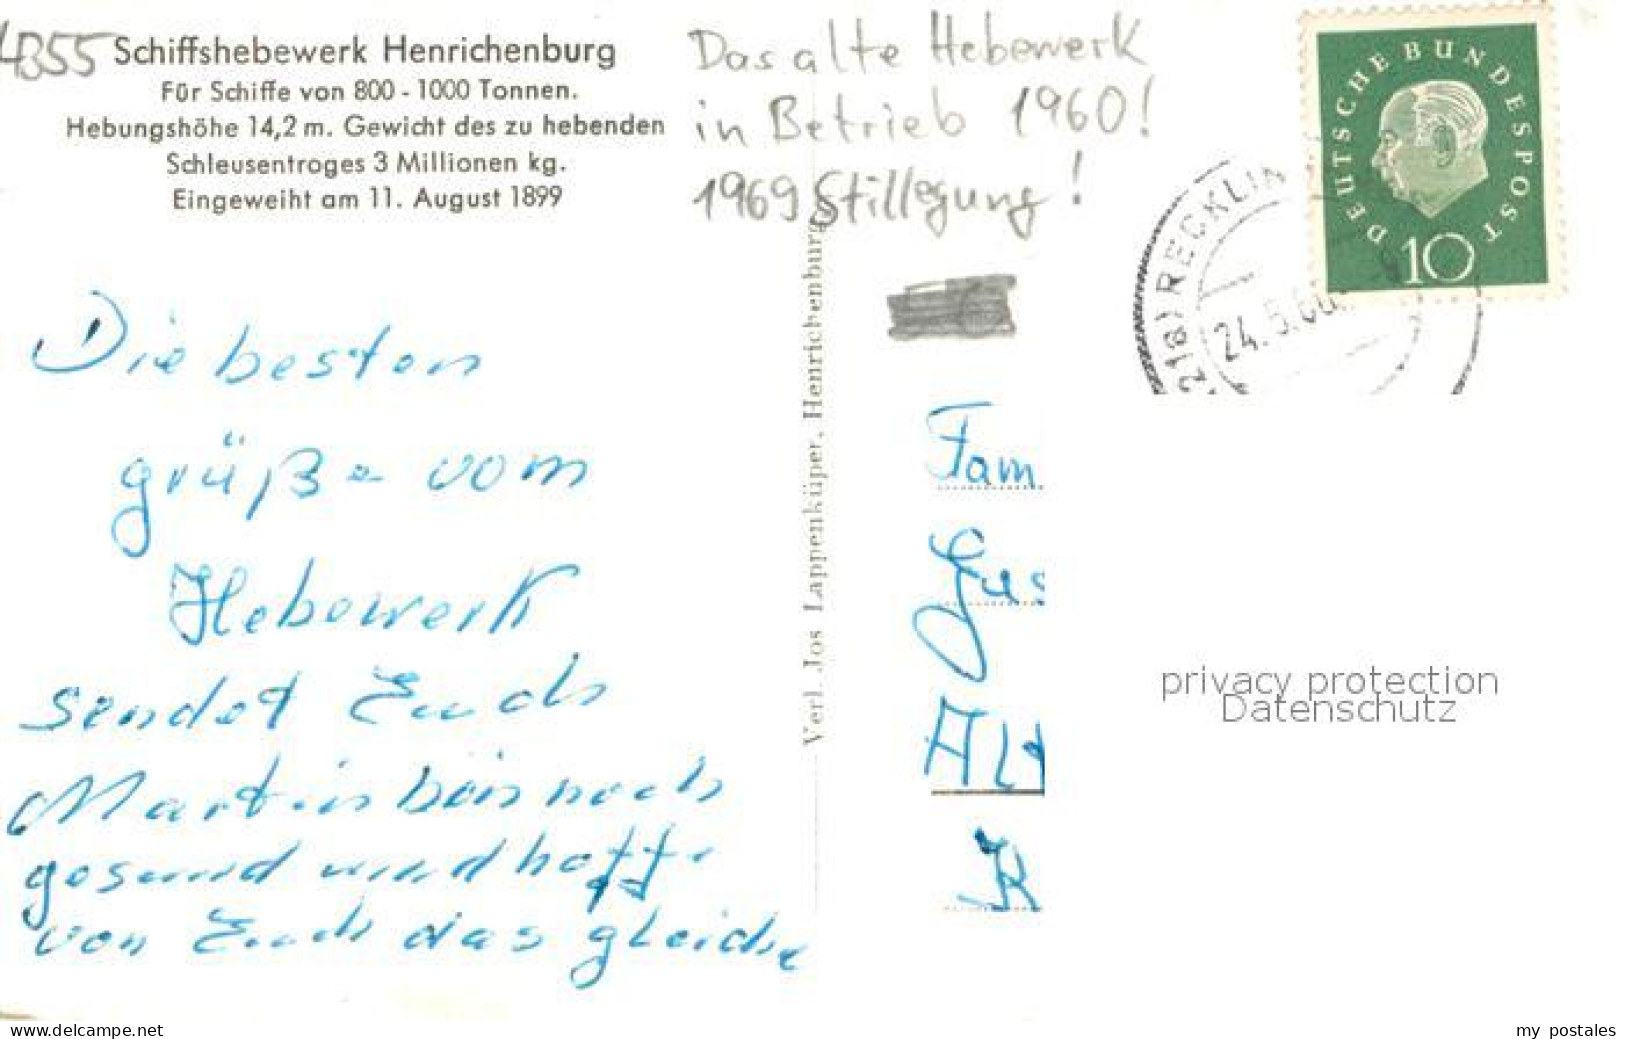 4355
Schiffshebewerk Henrichenburg
Für Schiffe von 800 - 1000 Tonnen.
Hebungshöhe 14,2 m. Gewicht des zu hebenden
Schleusentroges 3 Millionen kg.
Eingeweiht am 11. August 1899
Das alte Hebewerk
in Betrieb 1960!
1969 Stillegung!
DEUTSCHE BUNDESPOST
10
(21a) RECKLIN
24.5.60
Die besten
grüße vom
Hebewerk
sendet Euch
Martin bin noch
gesund und hoffe
von Euch das gleiche
Verl. Jos Lappenküper, Henrichenburg
Fam
Gus
Alt
K
privacy protection
Datenschutz
www.delcampe.net
my_postales